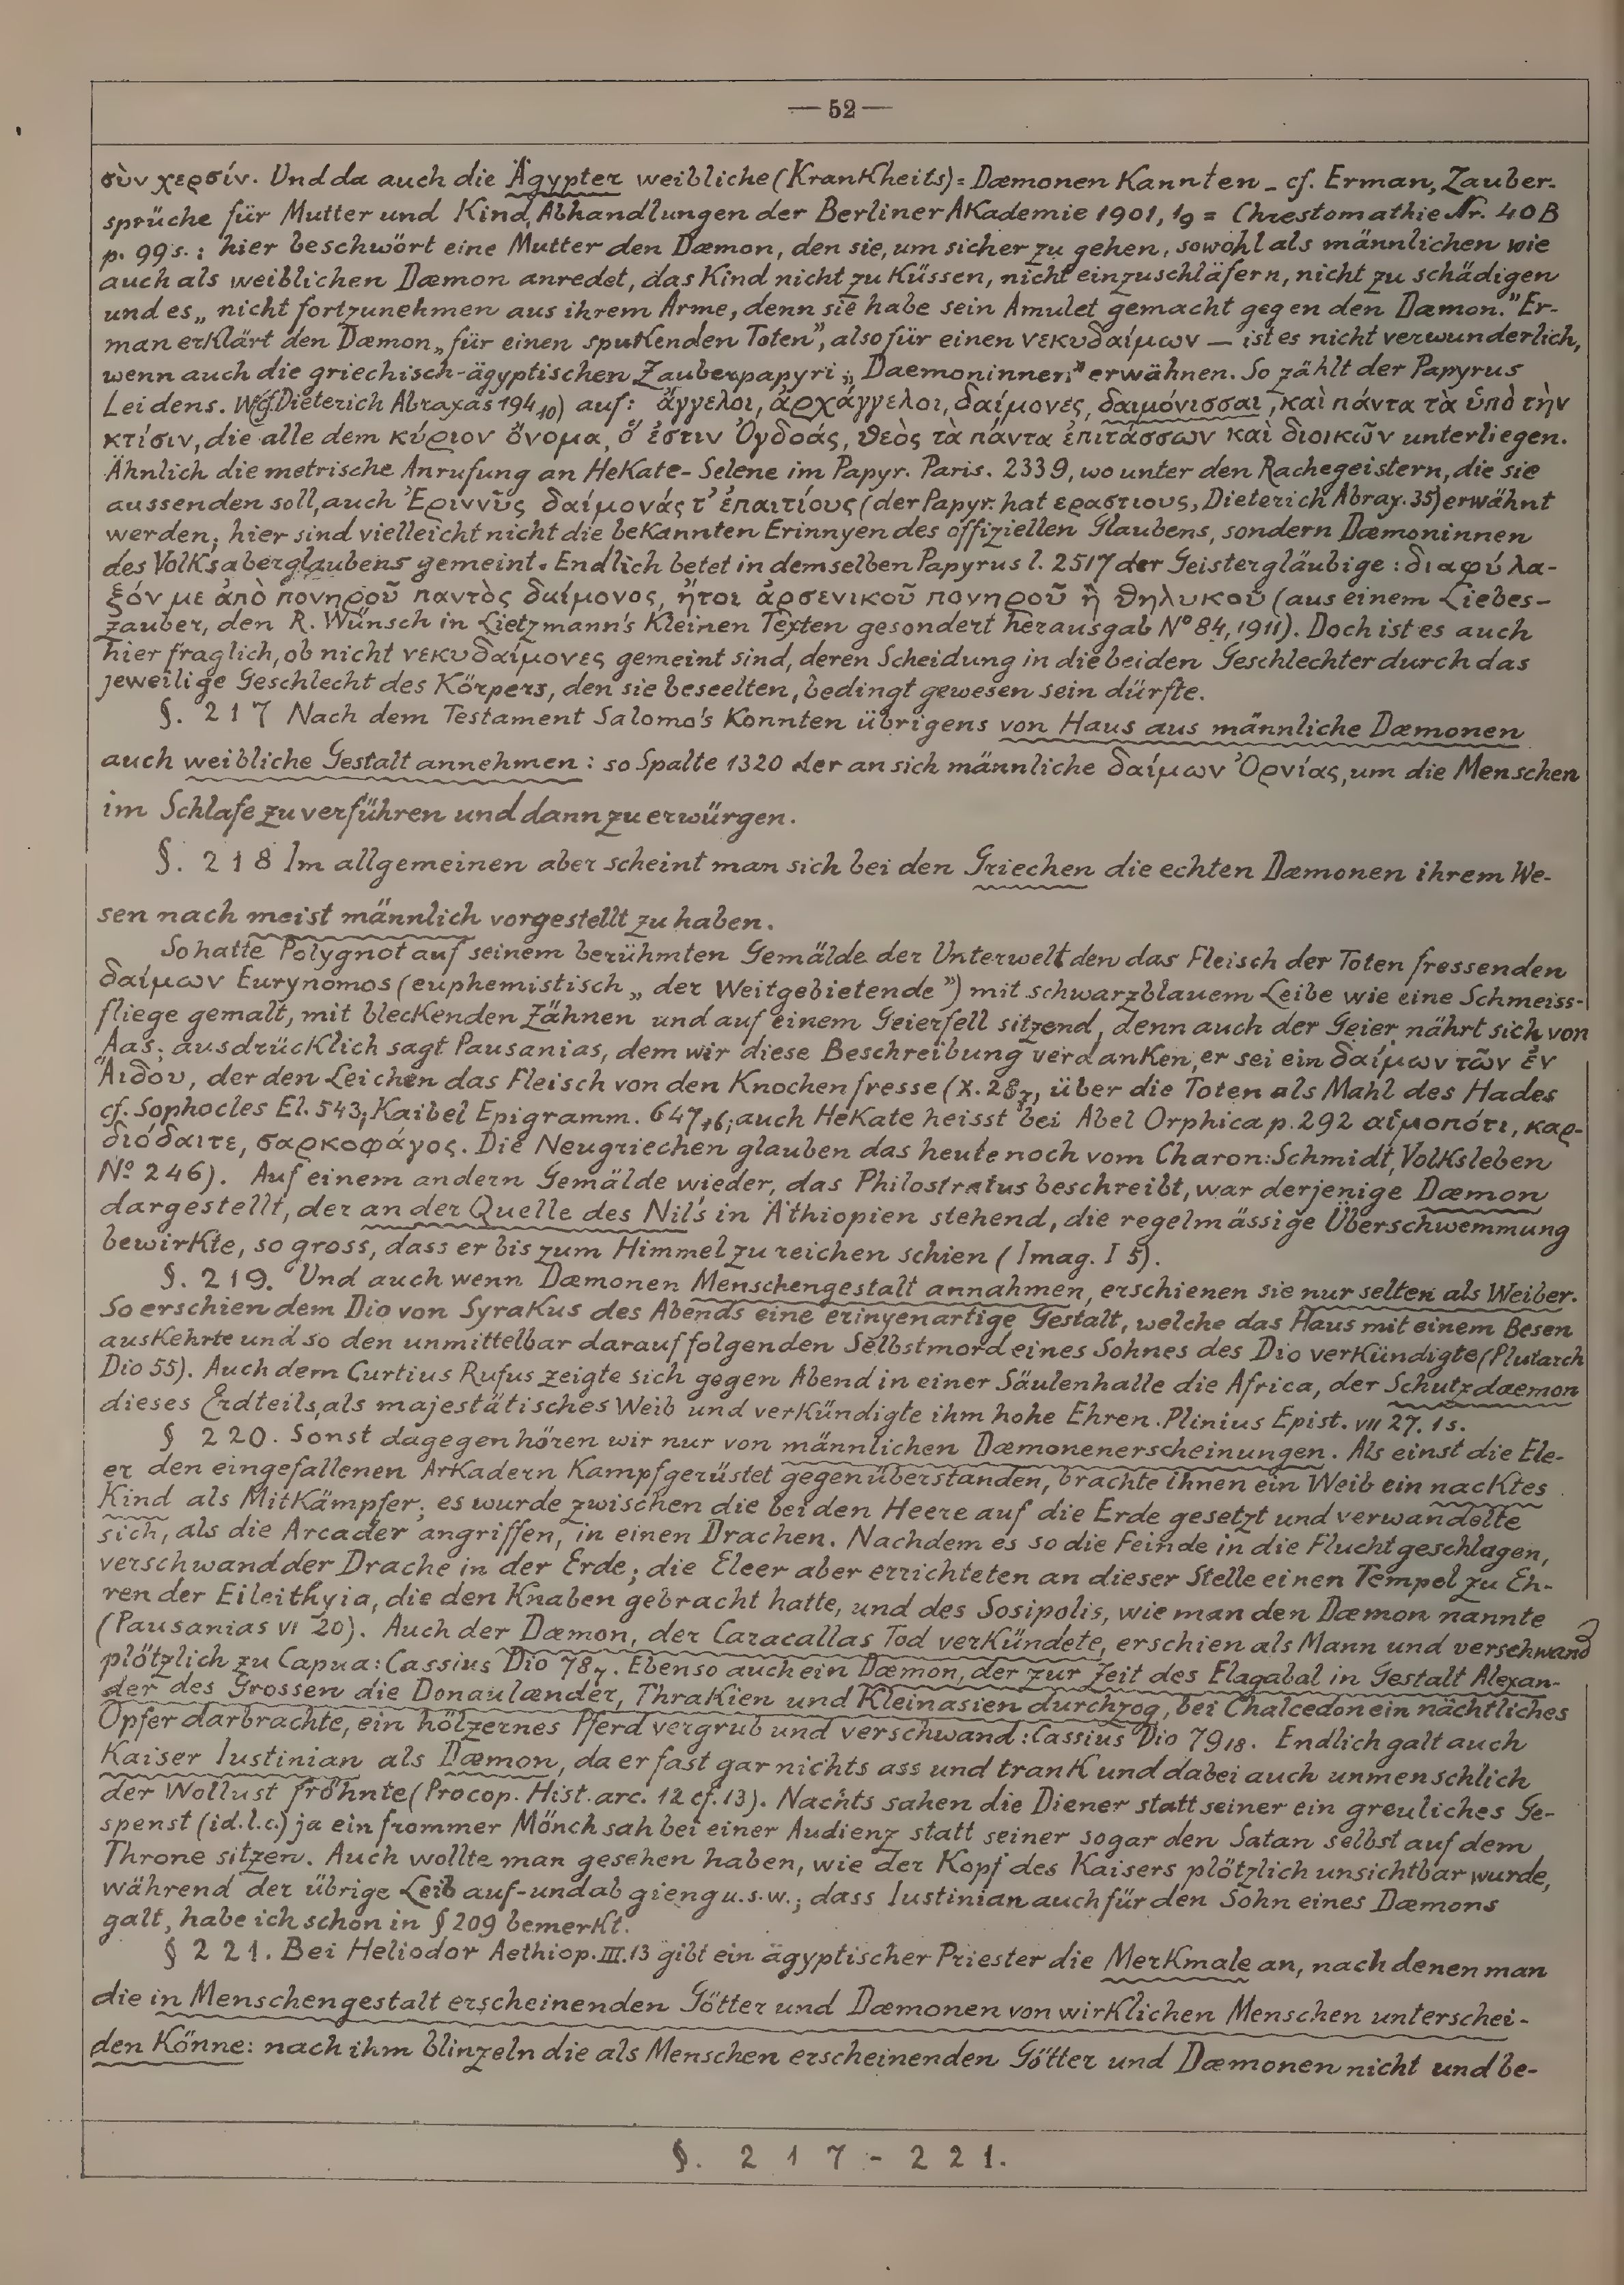 — 52 —
σὺν χερσίν. Und da auch die Ägypter weibliche (Krankheits)= Dæmonen kannten _ cf. Erman, Zauber-
sprüche für Mutter und Kind, Abhandlungen der Berliner Akademie 1901, 19 = Chrestomathie Nr. 40 B
p. 99 s.: hier beschwört eine Mutter den Dæmon, den sie, um sicher zu gehen, sowohl als männlichen wie
auch als weiblichen Dæmon anredet, das Kind nicht zu küssen, nicht einzuschläfern, nicht zu schädigen
und es „ nicht fortzunehmen aus ihrem Arme, denn sie habe sein Amulet gemacht gegen den Dæmon." Er-
man erklärt den Dæmon „für einen spukenden Toten", also für einen νεκυδαίμων — ist es nicht verwunderlich,
wenn auch die griechisch-ägyptischen Zauberpapyri „ Daemoninnen" erwähnen. So zählt der Papyrus
Leidens. W (Dieterich Abraxas 194 10) auf: ἄγγελοι, ἀρχάγγελοι, δαίμονες, δαιμόνισσαι, καὶ πάντα τὰ ὑπὸ τὴν
κτίσιν, die alle dem κύριον ὄνομα, ὅ ἐστιν Ὀγδοάς, θεὸς τὰ πάντα ἐπιτάσσων καὶ διοικῶν unterliegen.
Ähnlich die metrische Anrufung an Hekate-Selene im Papyr. Paris. 2339, wo unter den Rachegeistern, die sie
aussenden soll, auch Ἐριννῦς δαίμονάς τ' ἐπαιτίους (der Papyr. hat εραστιους, Dieterich Abrax. 35) erwähnt
werden; hier sind vielleicht nicht die bekannten Erinnyen des offiziellen Glaubens, sondern Dæmoninnen
des Volksaberglaubens gemeint. Endlich betet in demselben Papyrus l. 2517 der Geistergläubige: διαφύλα-
ξόν με ἀπὸ πονηροῦ παντὸς δαίμονος, ἤτοι ἀρσενικοῦ πονηροῦ ἢ θηλυκοῦ (aus einem Liebes-
zauber, den R. Wünsch in Lietzmann's Kleinen Texten gesondert herausgab Nº 84, 1911). Doch ist es auch
hier fraglich, ob nicht νεκυδαίμονες gemeint sind, deren Scheidung in die beiden Geschlechter durch das
jeweilige Geschlecht des Körpers, den sie beseelten, bedingt gewesen sein dürfte.
§. 217 Nach dem Testament Salomo's konnten übrigens von Haus aus männliche Dæmonen
auch weibliche Gestalt annehmen: so Spalte 1320 der an sich männliche δαίμων Ὀρνίας, um die Menschen
im Schlafe zu verführen und dann zu erwürgen.
§. 218 Im allgemeinen aber scheint man sich bei den Griechen die echten Dæmonen ihrem We-
sen nach meist männlich vorgestellt zu haben.
So hatte Polygnot auf seinem berühmten Gemälde der Unterwelt den das Fleisch der Toten fressenden
δαίμων Eurynomos (euphemistisch „ der Weitgebietende") mit schwarzblauem Leibe wie eine Schmeiss-
fliege gemalt, mit bleckenden Zähnen und auf einem Geierfell sitzend, denn auch der Geier nährt sich von
Aas; ausdrücklich sagt Pausanias, dem wir diese Beschreibung verdanken, er sei ein δαίμων τῶν ἐν
Ἅιδου, der den Leichen das Fleisch von den Knochen fresse (X. 28 7, über die Toten als Mahl des Hades
cf. Sophocles El. 543; Kaibel Epigramm. 647, 16; auch Hekate heisst bei Abel Orphica p. 292 αἱμοπότι, καρ-
διόδαιτε, σαρκοφάγος. Die Neugriechen glauben das heute noch vom Charon: Schmidt, Volksleben
Nº 246). Auf einem andern Gemälde wieder, das Philostratus beschreibt, war derjenige Dæmon
dargestellt, der an der Quelle des Nils in Äthiopien stehend, die regelmässige Überschwemmung
bewirkte, so gross, dass er bis zum Himmel zu reichen schien (Imag. I 5).
§. 219. Und auch wenn Dæmonen Menschengestalt annahmen, erschienen sie nur selten als Weiber.
So erschien dem Dio von Syrakus des Abends eine erinyenartige Gestalt, welche das Haus mit einem Besen
auskehrte und so den unmittelbar darauf folgenden Selbstmord eines Sohnes des Dio verkündigte (Plutarch
Dio 55). Auch dem Curtius Rufus zeigte sich gegen Abend in einer Säulenhalle die Africa, der Schutzdaemon
dieses Erdteils, als majestätisches Weib und verkündigte ihm hohe Ehren. Plinius Epist. VII 27. 1 s.
§ 220. Sonst dagegen hören wir nur von männlichen Dæmonenerscheinungen. Als einst die Ele-
er den eingefallenen Arkadern kampfgerüstet gegenüberstanden, brachte ihnen ein Weib ein nacktes
Kind als Mitkämpfer; es wurde zwischen die beiden Heere auf die Erde gesetzt und verwandelte
sich, als die Arcader angriffen, in einen Drachen. Nachdem es so die Feinde in die Flucht geschlagen,
verschwand der Drache in der Erde; die Eleer aber errichteten an dieser Stelle einen Tempel zu Eh-
ren der Eileithyia, die den Knaben gebracht hatte, und des Sosipolis, wie man den Dæmon nannte
(Pausanias VI 20). Auch der Dæmon, der Caracallas Tod verkündete, erschien als Mann und verschwand
plötzlich zu Capua: Cassius Dio 78 7. Ebenso auch ein Dæmon, der zur Zeit des Elagabal in Gestalt Alexan-
der des Grossen die Donaulænder, Thrakien und Kleinasien durchzog, bei Chalcedon ein nächtliches
Opfer darbrachte, ein hölzernes Pferd vergrub und verschwand: Cassius Dio 79 18. Endlich galt auch
Kaiser Iustinian als Dæmon, da er fast gar nichts ass und trank und dabei auch unmenschlich
der Wollust fröhnte (Procop. Hist. arc. 12 cf. 13). Nachts sahen die Diener statt seiner ein greuliches Ge-
spenst (id. l. c.) ja ein frommer Mönch sah bei einer Audienz statt seiner sogar den Satan selbst auf dem
Throne sitzen. Auch wollte man gesehen haben, wie der Kopf des Kaisers plötzlich unsichtbar wurde,
während der übrige Leib auf-und ab gieng u. s. w.; dass Iustinian auch für den Sohn eines Dæmons
galt, habe ich schon in § 209 bemerkt.
§ 221. Bei Heliodor Aethiop. III. 13 gibt ein ägyptischer Priester die Merkmale an, nach denen man
die in Menschengestalt erscheinenden Götter und Dæmonen von wirklichen Menschen unterschei-
den könne: nach ihm blinzeln die als Menschen erscheinenden Götter und Dæmonen nicht und be-
§. 217 - 221.